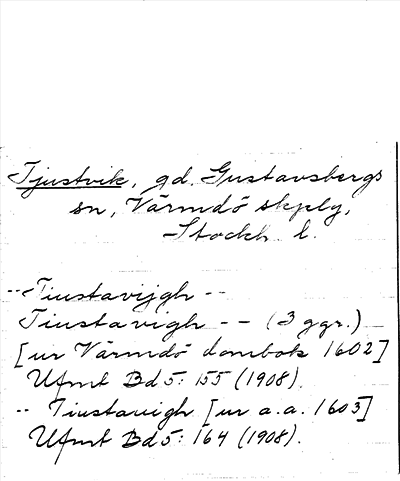 Tjustvik, gd. Gustavsbergs
sn, Värmdö skplg,
Stockh. l.
-- Tiustavijgh --
Tiustavigh -- (3 ggr.)
[ur Värmdö dombok 1602]
Ufmt Bd 5: 155 (1908).
-- Tiustauigh [ur a.a. 1603]
Ufmt Bd 5: 164 (1908).